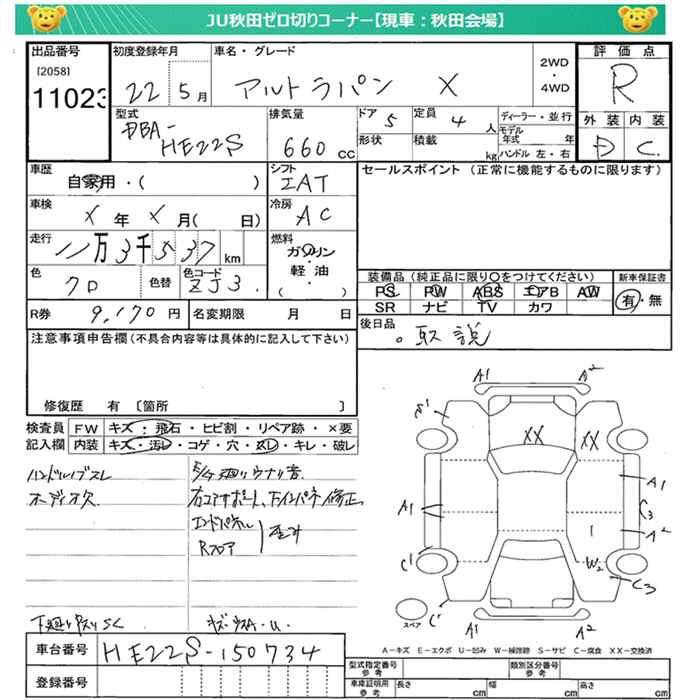 JU秋田ゼロ切りコーナー【現車：秋田会場】
出品番号
[2058]
11023
初度登録年月
22 5月
車名・グレード
アルトラパン X
2WD
・
4WD
評価点
R
外装 内装
D C
型式
DBA-
HE22S
排気量
660 cc
ドア 5
定員 4 人
形状
積載 kg
ディーラー・並行
モデル年式 年
ハンドル 左・右
車歴
自家用・( )
シフト
IAT
車検
X年 X月( 日)
冷房
AC
走行
11万3千537km
燃料
ガソリン
・
軽油
( )
色
クロ
色替
色コード
ZJ3.
R券 9,170円
名変期限 月 日
セールスポイント (正常に機能するものに限ります)
装備品(純正品に限り○をつけてください)
新車保証書
PS PW ABS エアB AW
SR ナビ TV カワ
有・無
後日品
。取説
注意事項申告欄(不具合内容等は具体的に記入して下さい)
修復歴 有 〔箇所 〕
検査員
記入欄
FW キズ・飛石・ヒビ割・リペア跡・×要
内装 キズ・汚レ・コゲ・穴・スレ・キレ・破レ
ハンドルハゲスレ
オーディオ欠
下廻りサビ SC
右コアサポート、
修正
エンドパネル
Rフロア
キズ・ウスA・U
A1 A2
XX XX
A1
A1
C3
A2
C1
W2
C3
スペア
C1
A1 A2
A－キズ E－エクボ U－凹み W－補修跡 S－サビ C－腐食 XX－交換済
車台番号
HE22S-150734
登録番号
型式指定番号
参考
類別区分番号
参考
車庫証明用
参考
長さ cm
幅 cm
高さ cm